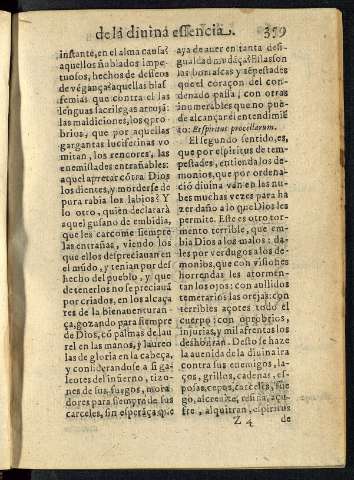 de la diuina essencia.
359
instante, en el alma causa?
aquellos ñublados impe-
tuosos, hechos de desseos
de vẽgança? aquellas blas
femias que contra el las
lenguas sacrilegas arrojã:
las maldiciones, los opro-
brios, que por aquellas
gargantas luciferinas vo
mitan, los rencores, las
enemistades entrañables:
aquel apretar cõtra Dios
los dientes, y morderse de
pura rabia los labios? Y
lo otro, quien declararà
aquel gusano de embidia,
que les carcome siempre
las entrañas, viendo los
que ellos despreciauan en
el mũdo, y tenian por des
hecho del pueblo, y que
de tenerlos no se preciauã
por criados, en los alcaça
res de la bienauenturan-
ça, gozando para siempre
de Dios, cõ palmas de lau
rel en las manos, y laureo
las de gloria en la cabeça,
y considerandose a si ga-
leotes del infierno, tizo-
nes de sus fuegos, mora-
dores para siempre de sus
carceles, sin esperãça que
aya de auer en tanta desi-
gualdad mudãça? Estas son
las borrascas y tẽpestades
que el coraçon del con-
denado passa, con otras
innumerables que no pue-
de alcançar el entendimiẽ
to: Et spiritus procellarum.
El segundo sentido, es,
que por espiritus de tem-
pestades, entienda los de-
monios, que por ordena-
ciõ diuina vãn en las nu-
bes muchas vezes para ha
zer daño a lo que Dios les
permite. Este es otro tor-
mento terrible, que em-
bia Dios a los malos: da-
les por verdugos a los de-
monios, que con visiones
horrendas les atormen-
tan los ojos: con aullidos
temerarios las orejas: con
terribles açotes todo el
cuerpo: con oprobrios,
injurias, y mil afrentas los
deshonran. Desto se haze
la auenida de la diuina ira
contra sus enemigos, la-
ços, grillos, cadenas, es-
posas, cepos, carceles, fue
go, alcreuite, resina, açu-
fre, alquitran, espiritus
Z 4
de